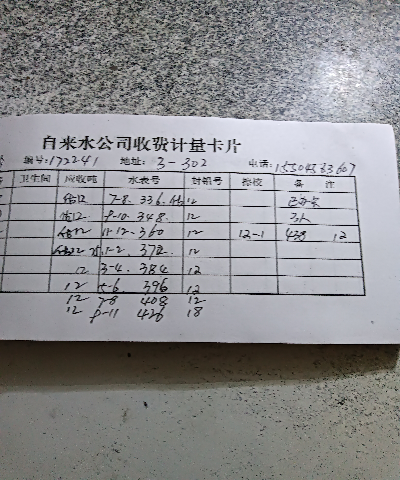 自来水公司收费计量卡片
编号:172241 地址: 3-302 电话:15504563607
卫生间 应收吨 水表号 封铅号 检校 备 注
估12 7-8. 336. 12 已办卡
估12 9-10. 348. 12 3人
估12 11-12. 360 12 12-1 438 12
1-2. 372 12
12 3-4. 384 12
12 5-6. 396 12
12 7-8 408 12
12 9-11 426 18